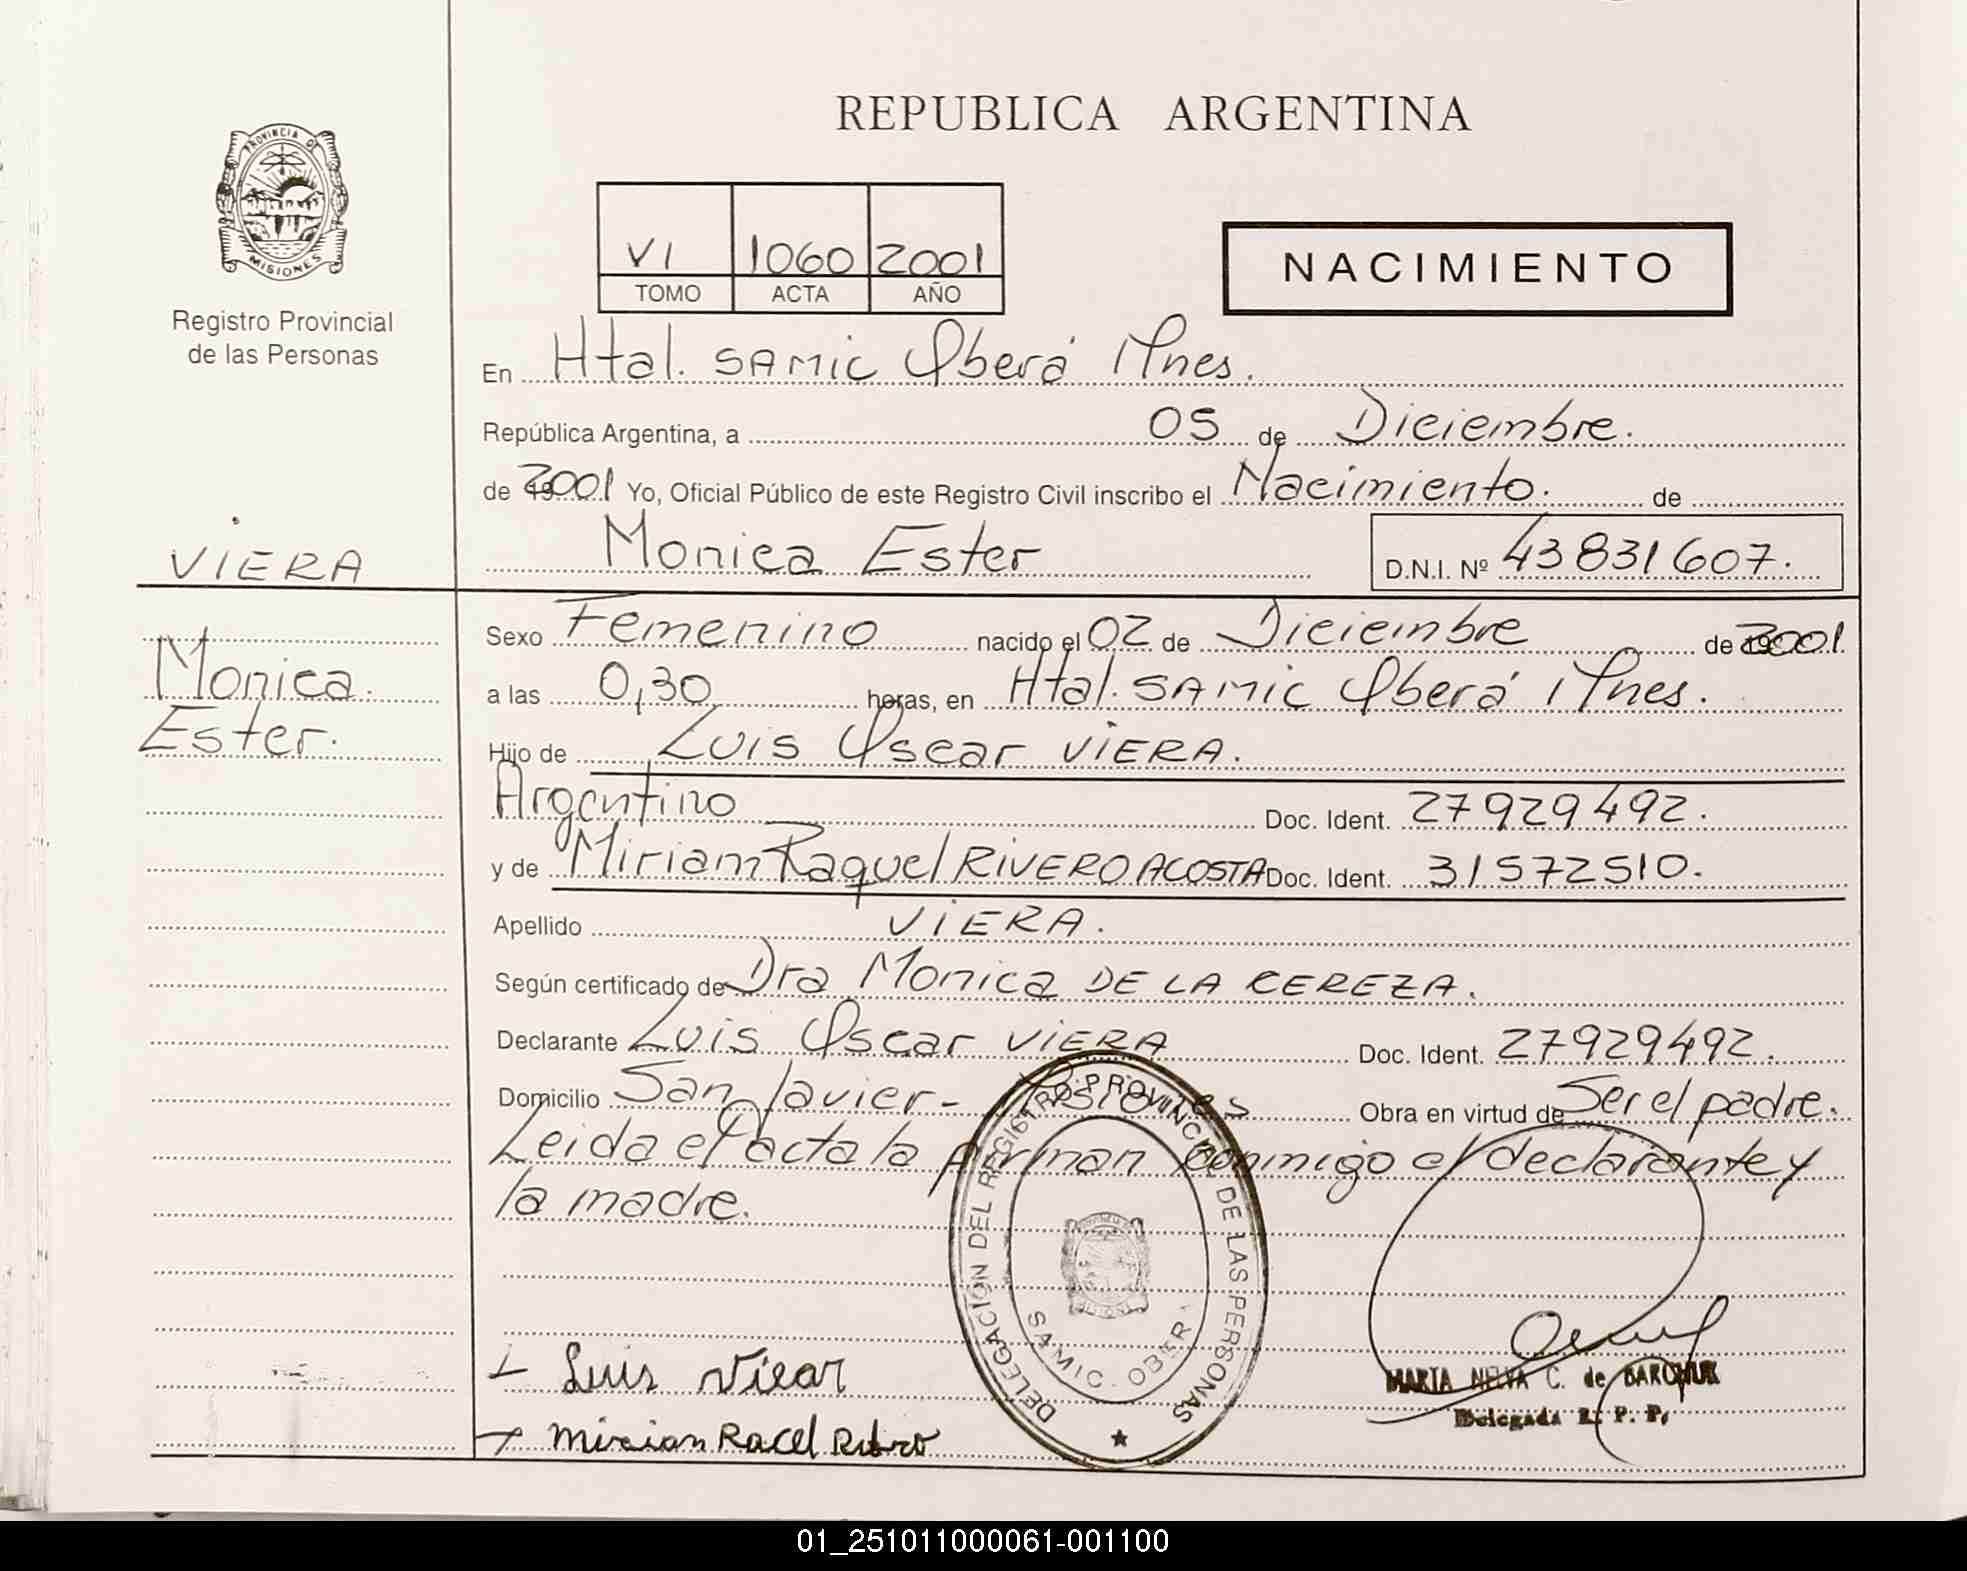 REPUBLICA ARGENTINA
PROVINCIA DE
MISIONES
Registro Provincial
de las Personas
VI 1060 2001
TOMO ACTA AÑO
NACIMIENTO
En Htal. SAMIC Oberá Mnes.
República Argentina, a 05 de Diciembre.
de 2001 Yo, Oficial Público de este Registro Civil inscribo el Nacimiento. de
Monica Ester D.N.I. Nº 43831607.
VIERA
Monica
Ester.
Sexo Femenino nacido el 02 de Diciembre de 2001.
a las 0,30 horas, en Htal. SAMIC Oberá Mnes.
Hijo de Luis Oscar VIERA.
Argentino Doc. Ident. 27929492.
y de Miriam Raquel RIVERO ACOSTA Doc. Ident. 31572510.
Apellido VIERA.
Según certificado de Dra Monica DE LA CEREZA.
Declarante Luis Oscar VIERA Doc. Ident. 27929492.
Domicilio San Javier - Misiones Obra en virtud de Ser el padre.
Leida el acta la firman conmigo el declarante y
la madre.
DELEGACIÓN DEL REGISTRO PROVINCIAL DE LAS PERSONAS
SAMIC. OBERA
Luis Viear
Mirian Racel
MARTA NELVA C. de BARCHUK
Delegada R. P. P.
01_251011000061-001100